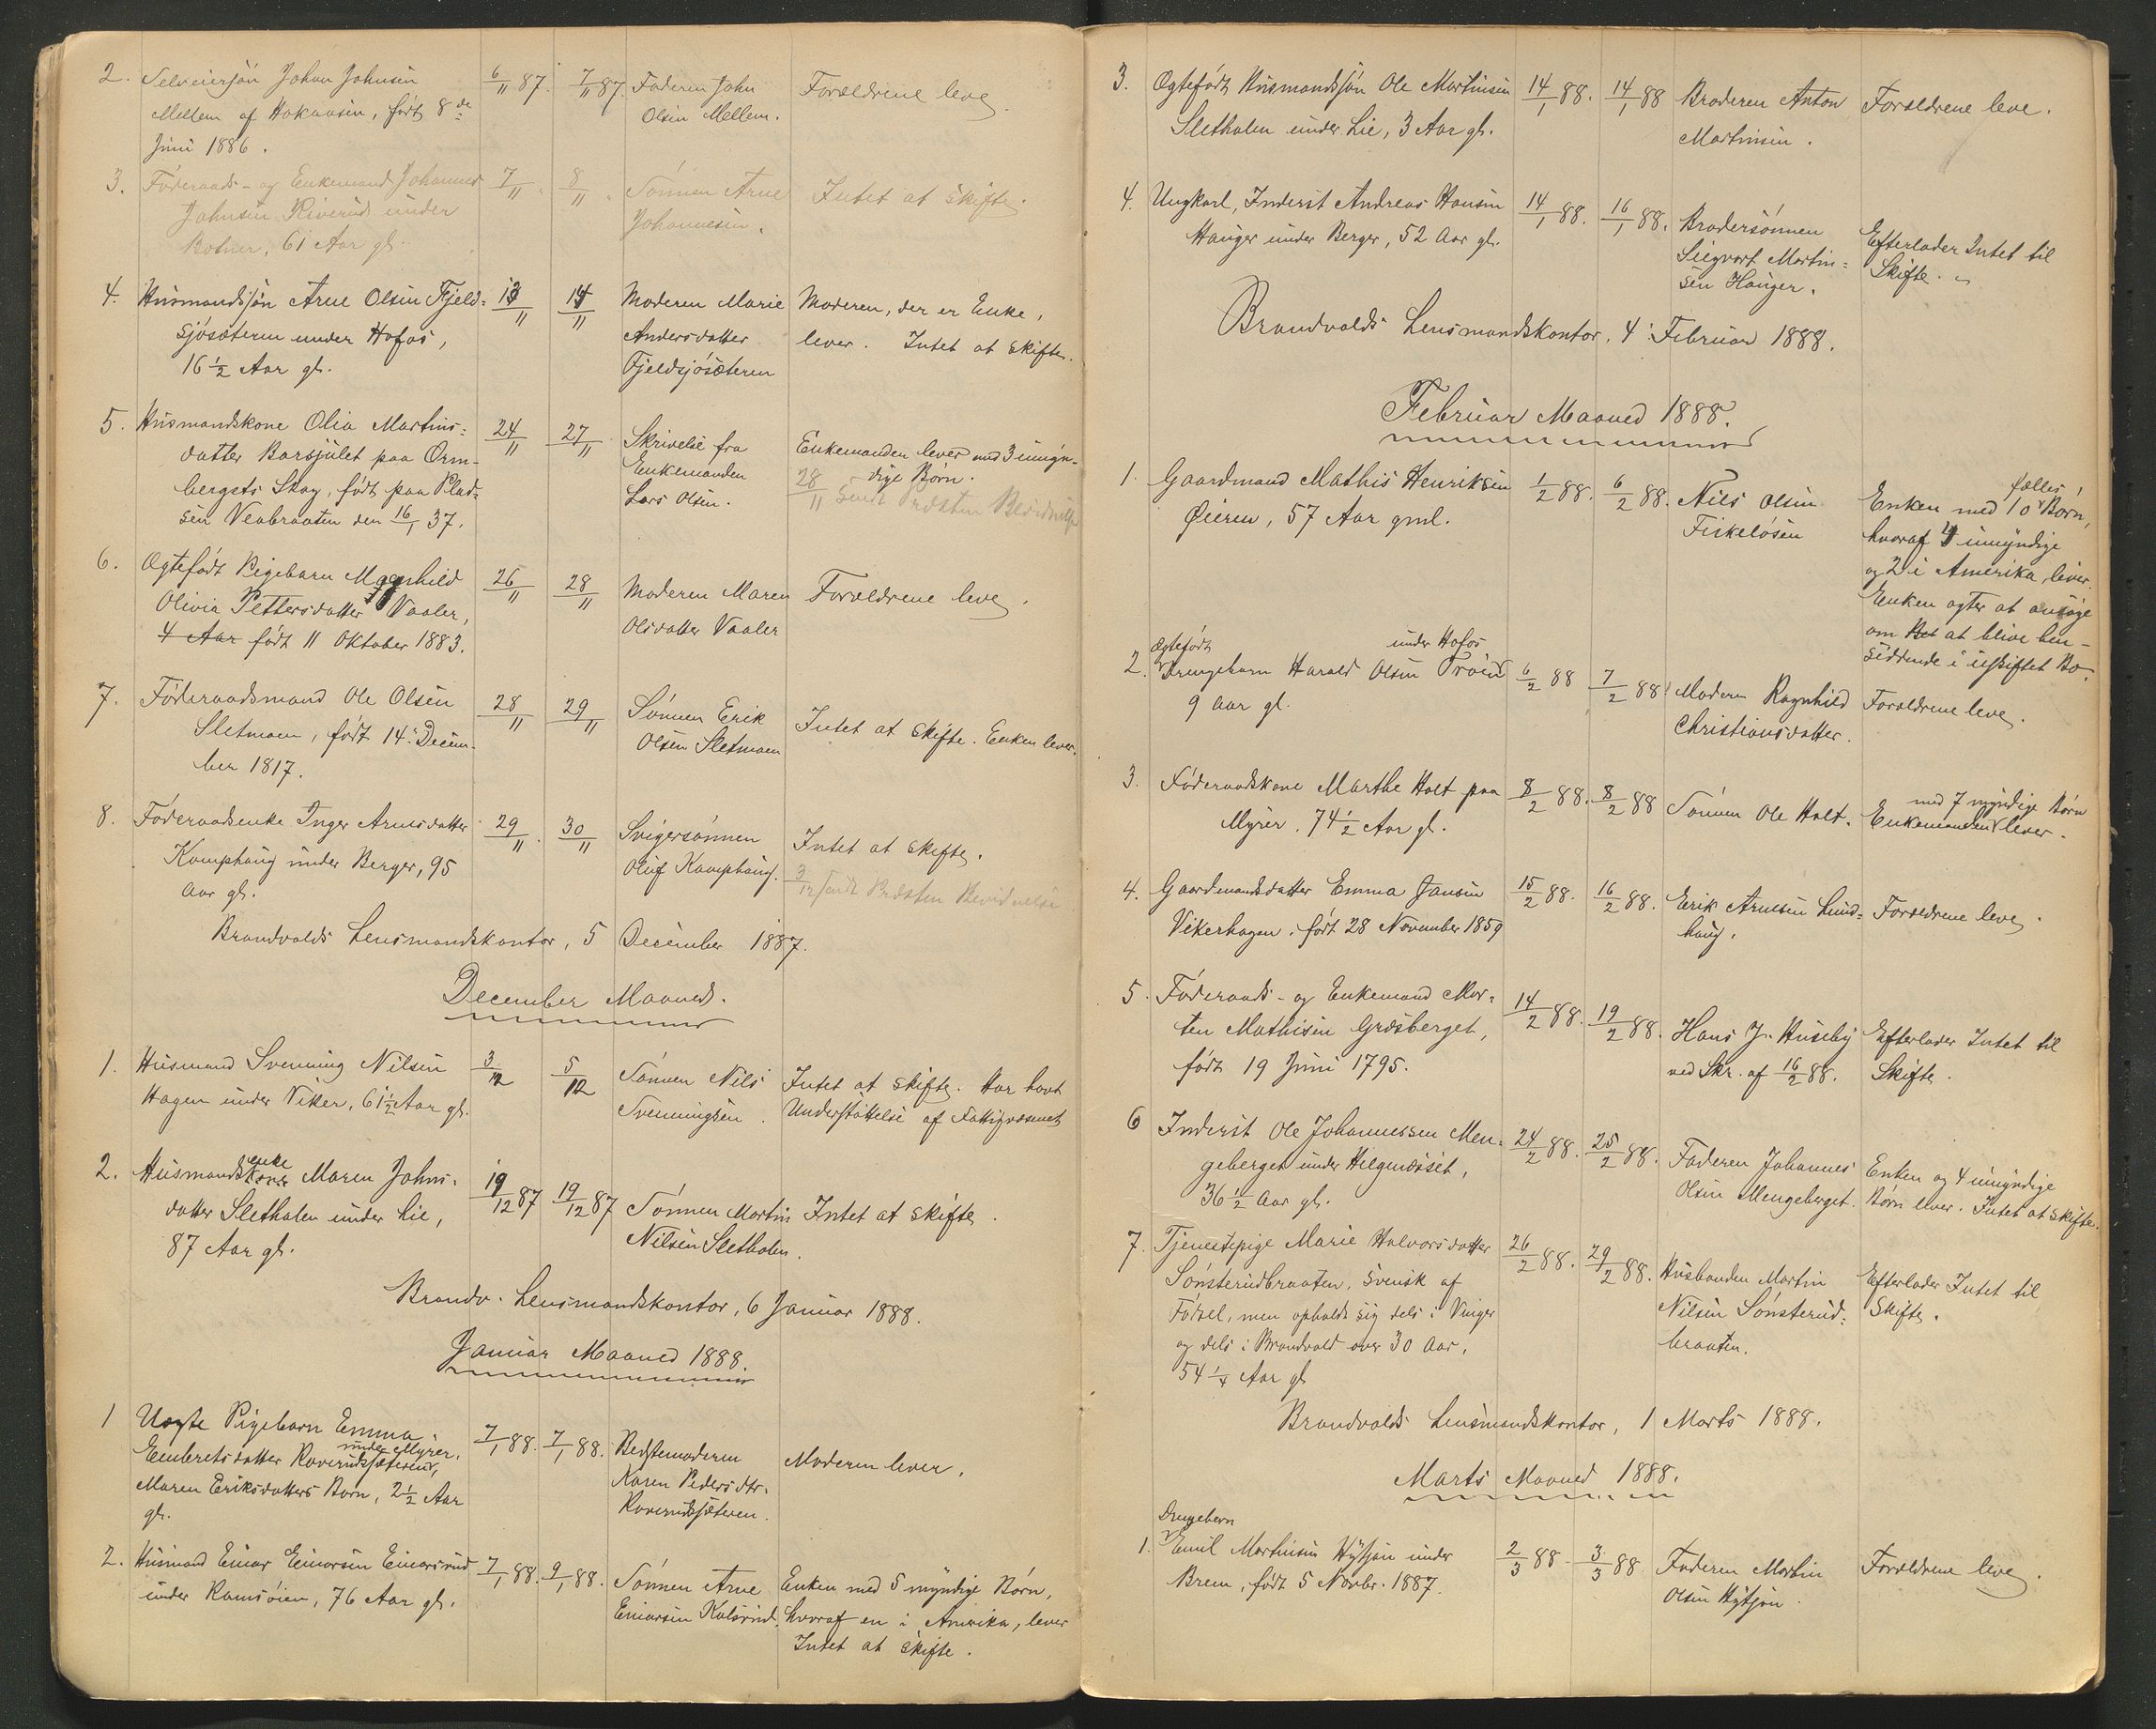 2. Selveiersøn Johan Johnsen 6/11 87. 7/11 87. Faderen John Forældrene leve.
Mellem af Hokaasen, født 8de Olsen Mellem.
Juni 1886.
3. Føderaads- og Enkemand Johannes 7/11. 8/11. Sønnen Arne Intet at skifte.
Johnsen Riverud under Johannesen.
Botner, 61 Aar gl.
4. Husmandssøn Arne Olsen Fjeld= 13/11 14/11 Moderen Marie Moderen, der er Enke,
sjøsæteren under Hofos, Andersdatter lever. Intet at skifte.
16 1/2 Aar gl. Fjeldsjøsæteren
5. Husmandskone Olia Martins= 24/11 27/11 Skrivelse fra Enkemanden lever med 3 umyn-
datter Barsjulet paa Orm- Enkemanden dige Børn.
bergets Skog, født paa Plad= Lars Olsen. 28/11 sendt Præsten Bevidnelse
sen Vesbraaten den 16/1 37.
6. Ægtefødt Pigebarn Magnhild 26/11 28/11 Moderen Maren Forældrene leve.
Olivia Pettersdatter Vaaler, Olsdatter Vaaler
4 Aar født 11 Oktober 1883.
7. Føderaadsmand Ole Olsen 28/11 29/11 Sønnen Erik Intet at skifte. Enken lever.
Sletmoen, født 14. Decem- Olsen Sletmoen
ber 1817.
8. Føderaadsenke Inger Arnesdatter 29/11. 30/11 Svigersønnen Intet at skifte.
Komphaug under Berger, 95 Oluf Kamphaug. 3/12 sendt Præsten Bevidnelse
Aar gl.
Brandvolds Lensmandskontor, 5 December 1887.
December Maaned.
1. Husmand Svenning Nilsen 3/12 5/12 Sønnen Nils Intet at skifte. Har havt
Hagen under Viker, 61 1/2 Aar gl. Svenningsen. Understøttelse af Fattigvæsenet
enke
2. Husmandskone Maren Johns= 19/12 87 19/12 87 Sønnen Martin Intet at skifte.
datter Sletholen under Lie, Nilsen Sletholen.
87 Aar gl.
Brandv. Lensmandskontor, 6 Januar 1888.
Januar Maaned 1888.
1 Uægte Pigebarn Emma 7/1 88. 7/1 88. Bedstemoderen Moderen lever.
under Myrer.
Embretsdatter Roverudsæteren, Karen Pedersdtr.
Maren Eriksdatters Barn, 2 1/2 Aar Roverudsæteren.
gl.
2. Husmand Einar Einarsen Einarsrud 7/1 88. 9/1 88. Sønnen Arne Enken med 5 myndige Børn,
under Ramsøien, 76 Aar gl. Einarsen Kulsrud. hvoraf en i Amerika, lever
Intet at skifte.
3. Ægtefødt Husmandssøn Ole Martinsen 14/1 88. 14/1 88 Broderen Anton Forældrene leve.
Sletholen under Lie, 3 Aar gl. Martinsen.
4. Ungkarl, Inderst Andreas Hansen 14/1 88. 16/1 88. Brodersønnen Efterlader Intet til
Hauger under Berger, 52 Aar gl. Siegvart Martin= Skifte.
sen Hauger.
Brandvolds Lensmandskontor, 4. Februar 1888.
Februar Maaned 1888.
fælles
1. Gaardmand Mathis Henriksen 1/2 88. 6/2 88. Nils Olsen Enken med 10 Børn,
Øieren, 57 Aar gml. Fiskeløsen hvoraf 4 umyndige
og 2 i Amerika, lever.
Enken agter at ansøge
om Ret at blive hen-
siddende i uskiftet Bo.
Ægtefødt under Hofos
2. Drengebarn Harald Olsen Trøen 6/2 88 7/2 88 Moderen Ragnhild Forældrene leve.
9 Aar gl. Christiansdatter.
med 7 myndige Børn
3. Føderaadskone Marthe Holt paa 8/2 88. 8/2 88 Sønnen Ole Holt. Enkemanden lever.
Myrer. 74 1/2 Aar gl.
4. Gaardmandsdatter Emma Jansen 15/2 88. 16/2 88. Erik Arnesen Lund= Forældrene leve.
Vikerhagen, født 28 November 1859 haug.
5. Føderaads- og Enkemand Mor= 14/2 88. 19/2 88. Hans J. Huseby Efterlader Intet til
ten Mathisen Græsberget, ved Skr. af 16/2 88. Skifte.
født 19 Juni 1795.
6 Inderst Ole Johannessen Men= 24/2 88. 25/2 88. Faderen Johannes Enken og 4 umyndige
geberget under Helgenæsset, Olsen Mengeberget. Børn elver. Intet at skifte.
36 1/2 Aar gl.
7. Tjenestepige Marie Halvorsdatter 26/2 88. 29/2 88. Husbonden Martin Efterlader Intet til
Sønsterudbraaten, Svensk af Nilsen Sønsterud= Skifte.
Fødsel, men opholdt sig dels i Vinger braaten.
og dels i Brandvold over 30 Aar,
54 1/4 Aar gl
Brandvolds Lensmandskontor, 1 Marts 1888.
Marts Maaned 1888.
Drengebarn
1. Emil Martinsen Hytjan under 2/3 88. 3/3 88 Faderen Martin Forældrene leve.
Brem, født 5 Novbr. 1887. Olsen Hytjan.